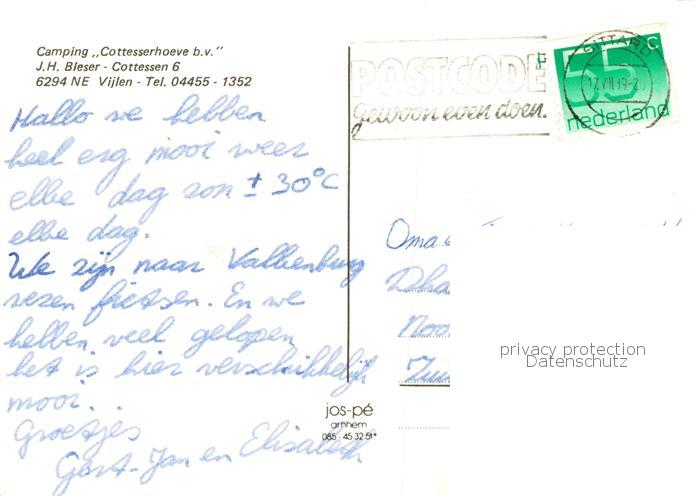 Camping ,,Cottesserhoeve b.v.''
J.H. Bleser - Cottessen 6
6294 NE Vijlen - Tel. 04455 - 1352
Hallo we hebben
heel erg mooi weer
elke dag zon ± 30°C
elke dag.
We zijn naar Valkenburg
wezen fietsen. En we
hebben veel gelopen
het is hier verschikkelijk
mooi...
Groetjes
Gert-Jan en Elisabeth
POSTCODE
gewoon even doen.
SITTARD
55 c
nederland
Oma
jos-pé
arnhem
085 - 45 32 51*
privacy protection
Datenschutz